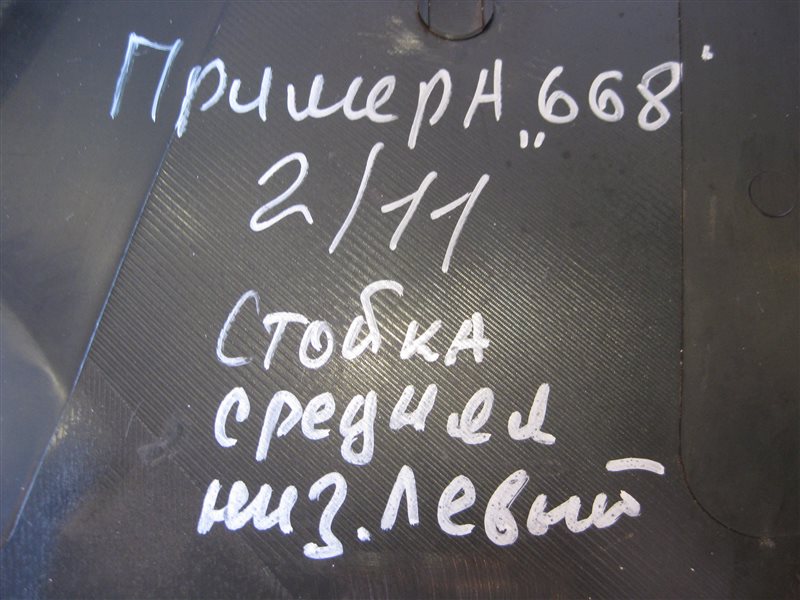 ПримерА „668"
2/11
Стойка
средняя
низ. левый